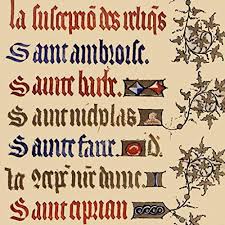 la suscepciō des reliq̄s
Saint ambroise.
Sainte barbe.
Saint nicholas
Sainte fare d.
la 2cep̄. nr̄e dame.
Saint ciprian